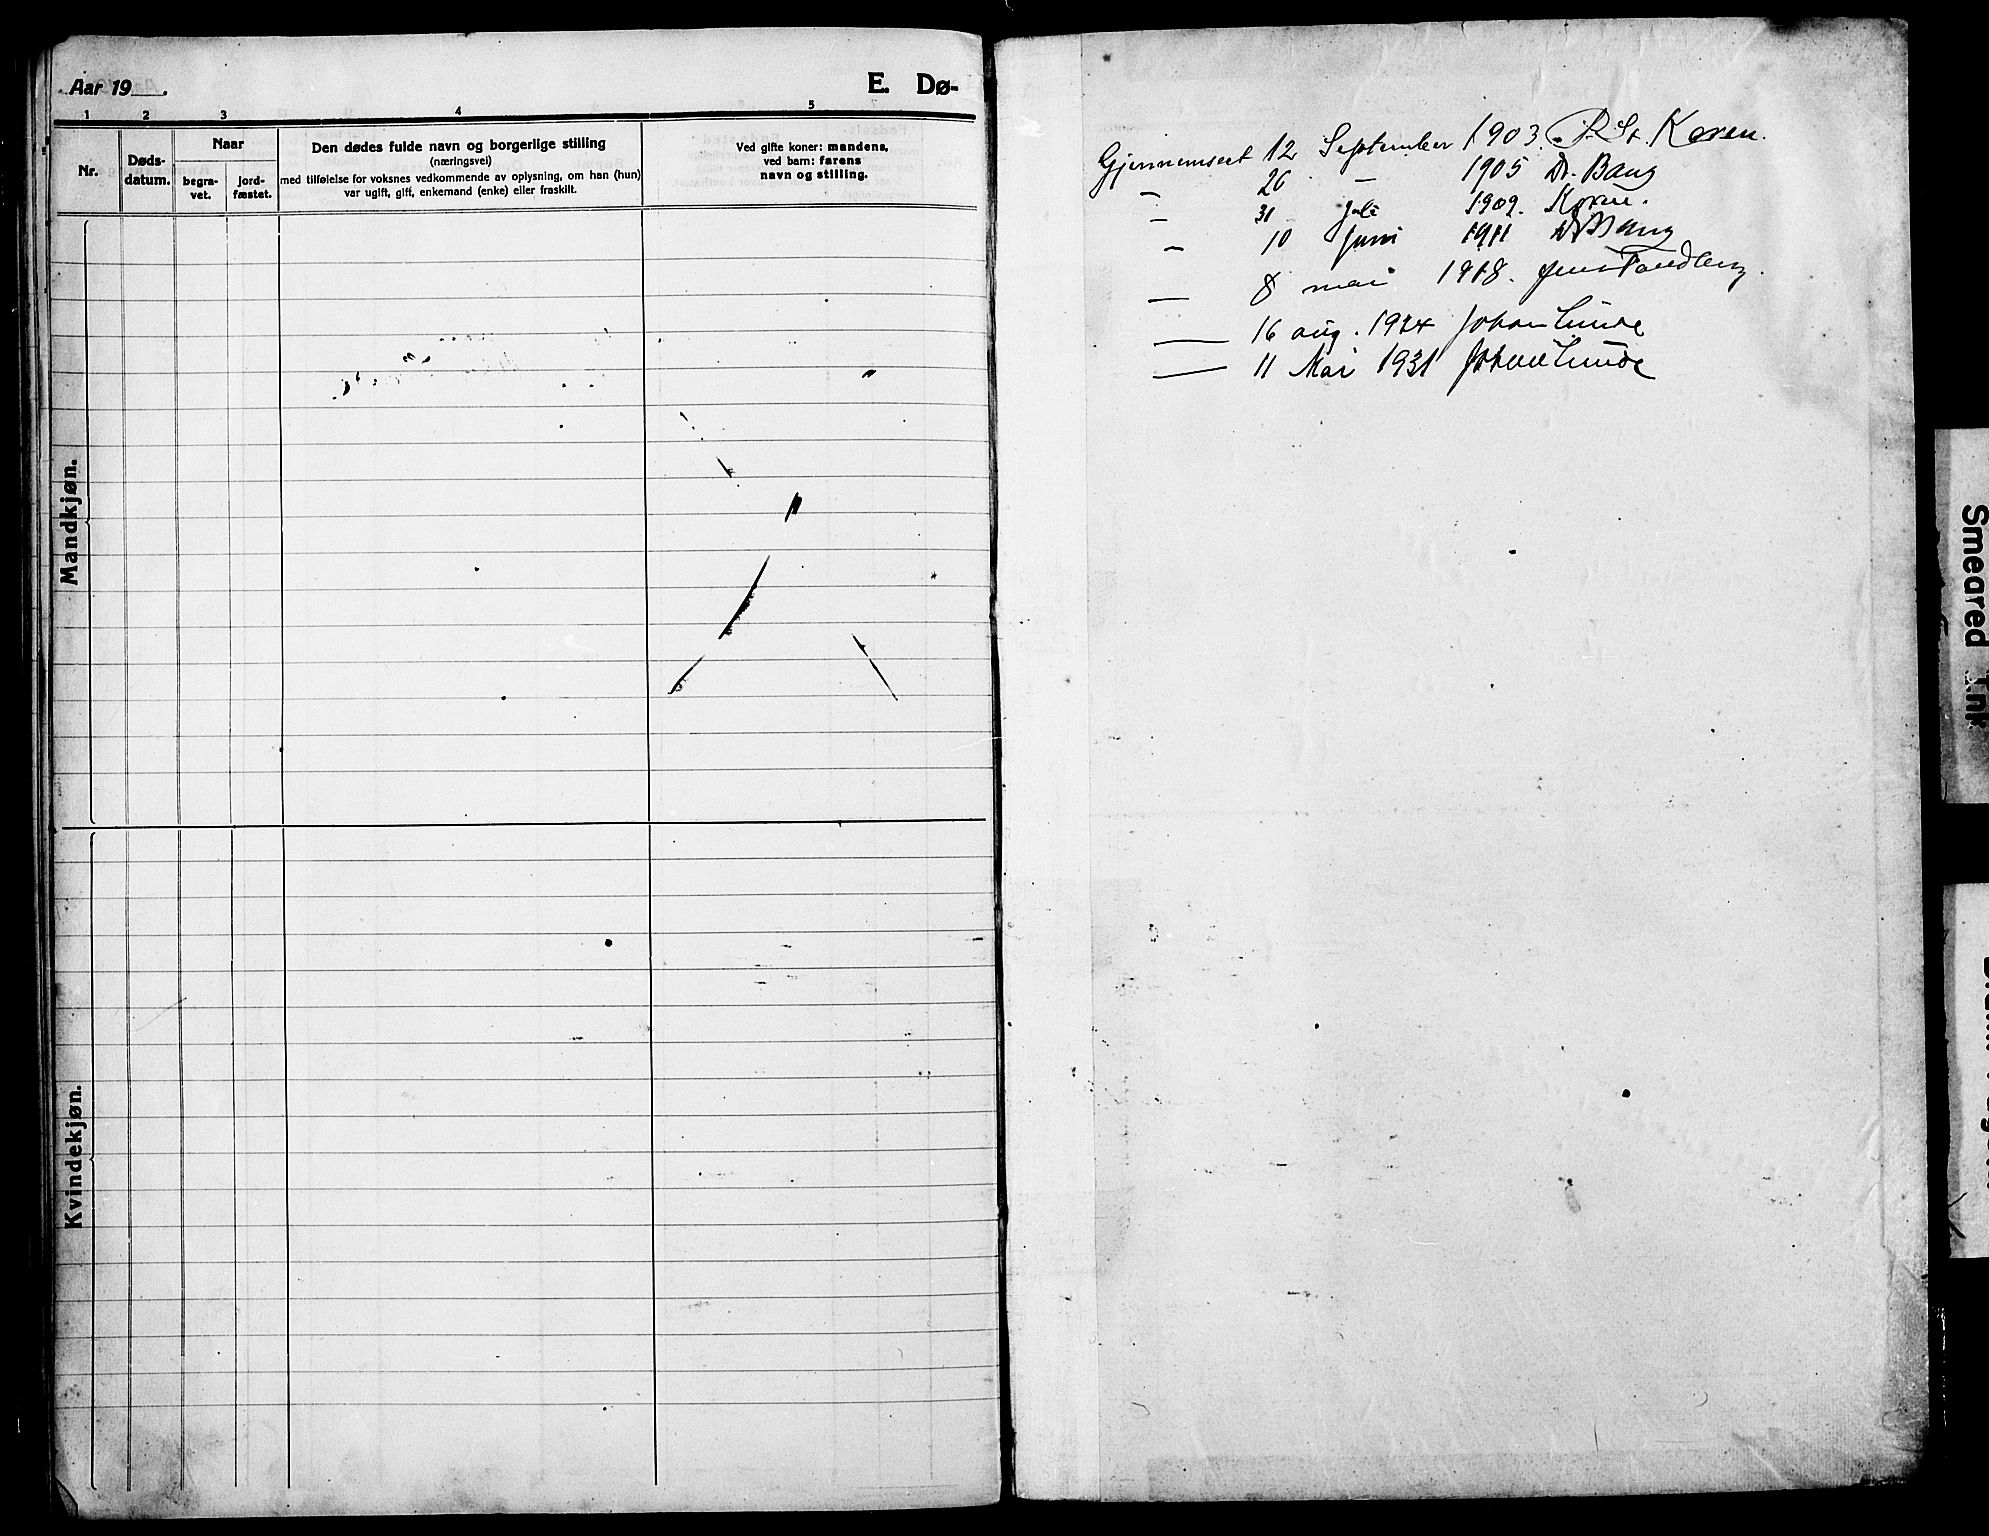 Aar 19___.
E. Dø-
1 2 3 4 5
Nr.
Døds-
datum.
Naar
begra-
vet.
jord-
fæstet.
Den dødes fulde navn og borgerlige stilling
(næringsvei)
med tilføielse for voksnes vedkommende av oplysning, om han (hun)
var ugift, gift, enkemand (enke) eller fraskilt.
Ved gifte koner: mandens,
ved barn: farens
navn og stilling.
Mandkjøn.
Kvindekjøn.
Gjennemseet 12 September 1903. R St. Koren.
" 26 — 1905 Dr. Bang
" 31 Juli 1909. Koren.
" 10 Juni 1911 Dr Bang
— 8 mai 1918. Jens Tandberg.
— 16 aug. 1924 Johan Lunde
— 11 Mai 1931 Johan Lunde
Smeared Ink